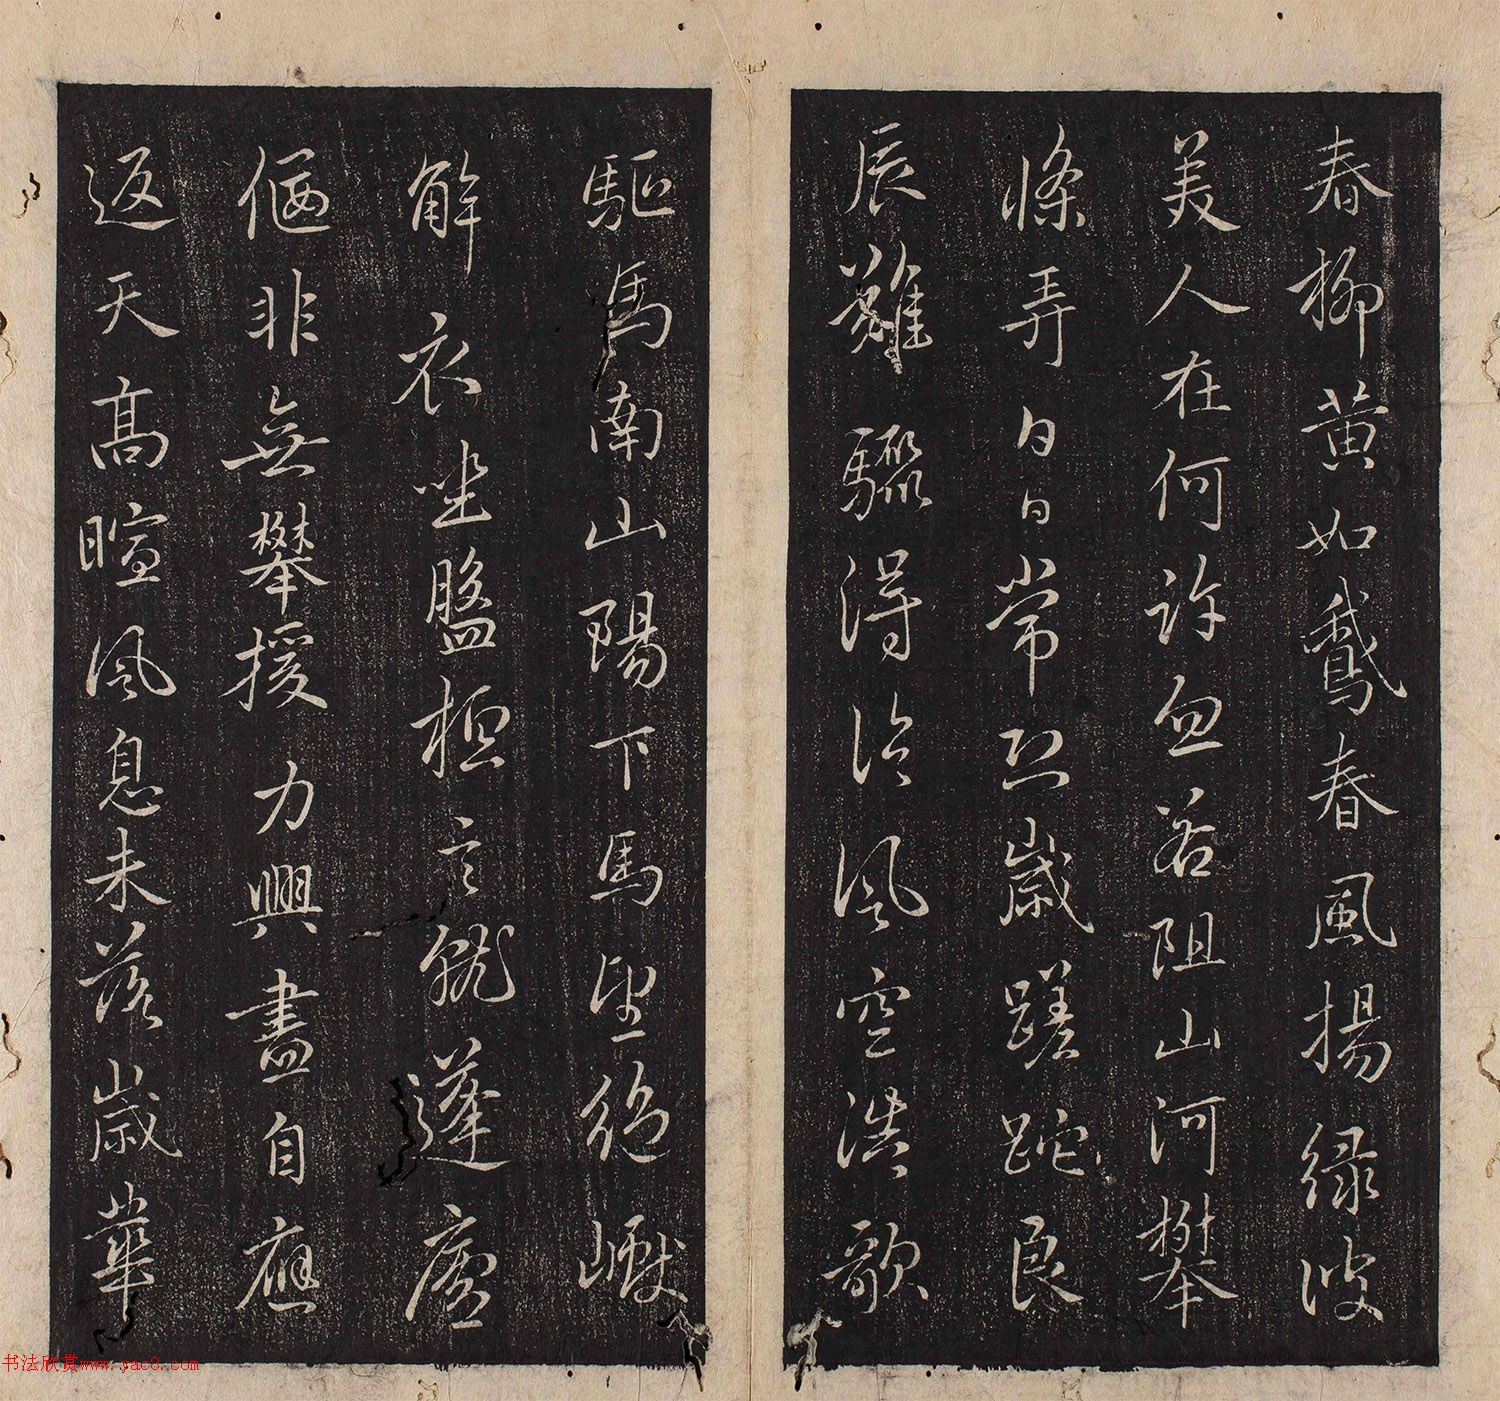 春柳黄如鵞春風揚緑波
美人在何許忽若阻山河攀
條弄白日常恐歲蹉跎良
辰難驟得泠風空浩歌
驅馬南山陽下馬望絶巘
解衣坐盤桓言就蓬廬
偃非無攀援力興盡自應
返天高暄風息未落歲華
书法欣赏www.yac8.com